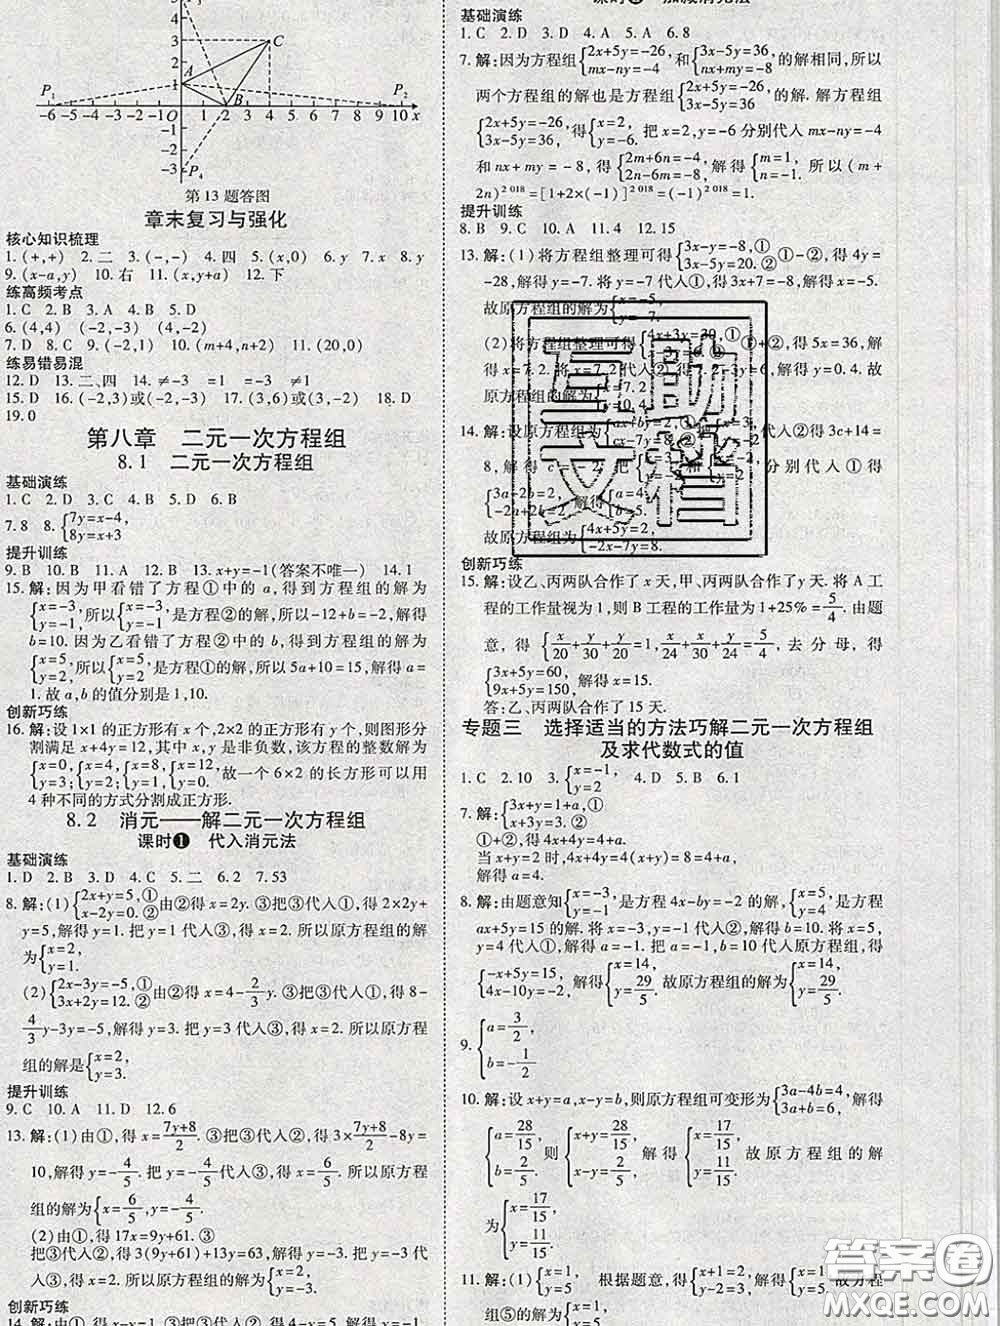 5
4
3
2
C
A
1
P₁
P₂
B
-6 -5 -4 -3 -2 -1 O 1 2 3 4 5 6 7 8 9 10 x
-1
-2
-3
P₄
第13题答图
章末复习与强化
核心知识梳理
1. (+,+) 2. 二 3. (-,-) 4. 四 5. (x,0) 6. y 7. x 8. y
9. (x-a,y) 10. 右 11. (x,y+a) 12. 下
练高频考点
1. C 2. B 3. A 4. B 5. D
6. (4,4) (-2,-3) (4,-2)
7. D 8. C 9. (-2,1) 10. (m+4,n+2) 11. (20,0)
练易错易混
12. D 13. 二、四 14. ≠-3 =1 =-3 ≠1
15. D 16. (-2,3)或(-2,-3) 17. (3,6)或(3,-2) 18. D
19. 0
第八章 二元一次方程组
8.1 二元一次方程组
基础演练
1. C 2. C 3. D 4. A 5. D 6. B
7. 8 8. {7y=x-4, 8y=x+3
提升训练
9. B 10. B 11. A 12. B 13. x+y=-1(答案不唯一) 14. 1
15. 解:因为甲看错了方程①中的 a,得到方程组的解为
{x=-3, y=-1,所以{x=-3, y=-1是方程②的解,所以-12+b=-2,解得
b=10. 因为乙看错了方程②中的 b,得到方程组的解为
{x=5, y=2,所以{x=5, y=2是方程①的解,所以 5a+10=15,解得 a=
1. 故 a,b 的值分别是 1,10.
创新巧练
16. 解:设1×1的正方形有 x 个,2×2的正方形有 y 个,则图形分
割满足 x+4y=12,其中 x,y 是非负数,该方程的整数解为
{x=0, y=3; {x=4, y=2; {x=8, y=1; {x=12, y=0,故一个 6×2 的长方形可以用
4 种不同的方式分割成正方形.
8.2 消元——解二元一次方程组
课时❶ 代入消元法
基础演练
1. D 2. B 3. D 4. C 5. 二 6. 2 7. 53
8. 解:(1){2x+y=5,① x-2y=0.②由②得 x=2y. ③把③代入①,得 2×2y+
y=5,解得 y=1. 把 y=1 代入③,得 x=2. 所以原方程组的解
为{x=2, y=1.
(2){2x-3y=-5,① 3x+2y=12.②由②得 x=4-2/3 y. ③把③代入①,得 8-
4/3 y-3y=-5,解得 y=3. 把 y=3 代入③,得 x=2. 所以原方程
组的解是{x=2, y=3.
提升训练
9. C 10. A 11. D 12. 6
13. 解:(1)由①,得 x=7y+8/2. ③把③代入②,得 3×7y+8/2-8y=
10,解得 y=-4/5. 把 y=-4/5 代入③,得 x=6/5. 所以原方程
组的解为{x=6/5, y=-4/5.
(2)由①,得 17x=9y+61. ③
把③代入②,得 3(9y+61)+13y=23,解得 y=-4. 把 y=-4 代
入③,得 x=... 所以原方程组的解为
创新巧练
基础演练
1. C 2. D 3. D 4. A 5. A 6. 8
7. 解:因为方程组{2x+5y=-26, mx-ny=-4 和{3x-5y=36, nx+my=-8 的解相同,所以
两个方程组的解也是方程组{2x+5y=-26, 3x-5y=36 的解. 解方程组
{2x+5y=-26, 3x-5y=36,得{x=2, y=-6. 把 x=2,y=-6 分别代入 mx-ny=-4
和 nx+my=-8,得{2m+6n=-4, 2n-6m=-8,解得{m=1, n=-1. 所以(m+
2n)²⁰¹⁸=[1+2×(-1)]²⁰¹⁸=(-1)²⁰¹⁸=1.
提升训练
8. B 9. C 10. A 11. 4 12. 15
13. 解:(1)将方程组整理可得{3x-y=-8,① 3x-5y=20.②①-②,得 4y=
-28,解得 y=-7. 将 y=-7 代入①,得 3x+7=-8,解得 x=-5.
故原方程组的解为{x=-5, y=-7.
(2)将方程组整理可得①+②,得 5x=36,解得
x=7.2. 将 x=7.2代入②,得 7.2-3y=6,解得 y=0.4. 故
原方程组的解为{x=7.2, y=0.4.
14. 解:设原方程组为{ax+by=2,① cx-7y=8.②把代入②得 3c+14=
8,解得 c=-2. 把和分别代入①得
{3a-2b=2, -2a+2b=2,解得{a=4, b=5.
故原方程组为{4x+5y=2, -2x-7y=8.
创新巧练
15. 解:设乙、丙两队合作了 x 天,甲、丙两队合作了 y 天. 将 A 工
程的工作量视为 1,则 B 工程的工作量为 1+25%=5/4. 由题
意,得{x/20+y/30+y/20=1, x/30+x/24+y/24=5/4,去分母,得
{3x+5y=60, 9x+5y=150,解得 x=15.
答:乙、丙两队合作了 15 天.
专题三 选择适当的方法巧解二元一次方程组
及求代数式的值
1. C 2. 10 3. {x=-1, y=2 4. D 5. B 6. 1
7. 解:{3x+y=1+a,① x+3y=3.②
①+②,得 4x+4y=4+a.
当 x+y=2 时,4x+4y=4(x+y)=8=4+a.
解得 a=4.
8. 解:由题意知{x=-3, y=-1,是方程 4x-by=-2 的解,{x=5, y=4是方程
ax+5y=15 的解. 将 x=-3,y=-1 代入②,解得 b=10. 将 x=5,
y=4 代入①,解得 a=-1. 把 a=-1,b=10 代入原方程组,得
{-x+5y=15, 4x-10y=-2,解得{x=14, y=29/5. 故原方程组的解为{x=14, y=29/5.
9. {a=3/2, b=-1/2
10. 解:设 x+y=a,x-y=b,则原方程组可变形为{3a-4b=4, 3a+b=6,解得
{a=28/15, b=2/5. 则{x+y=28/15, x-y=2/5. 解得{x=17/15, y=11/15. 故原方程组的解
为{x=17/15, y=11/15.
11. 解:(1){x=1, y=5 根据题意,得{x+2=1, y-2=3,解得{x=-1, y=5.故方程
组⑤的解为
互助文稿
答案圈
MXQE.COM